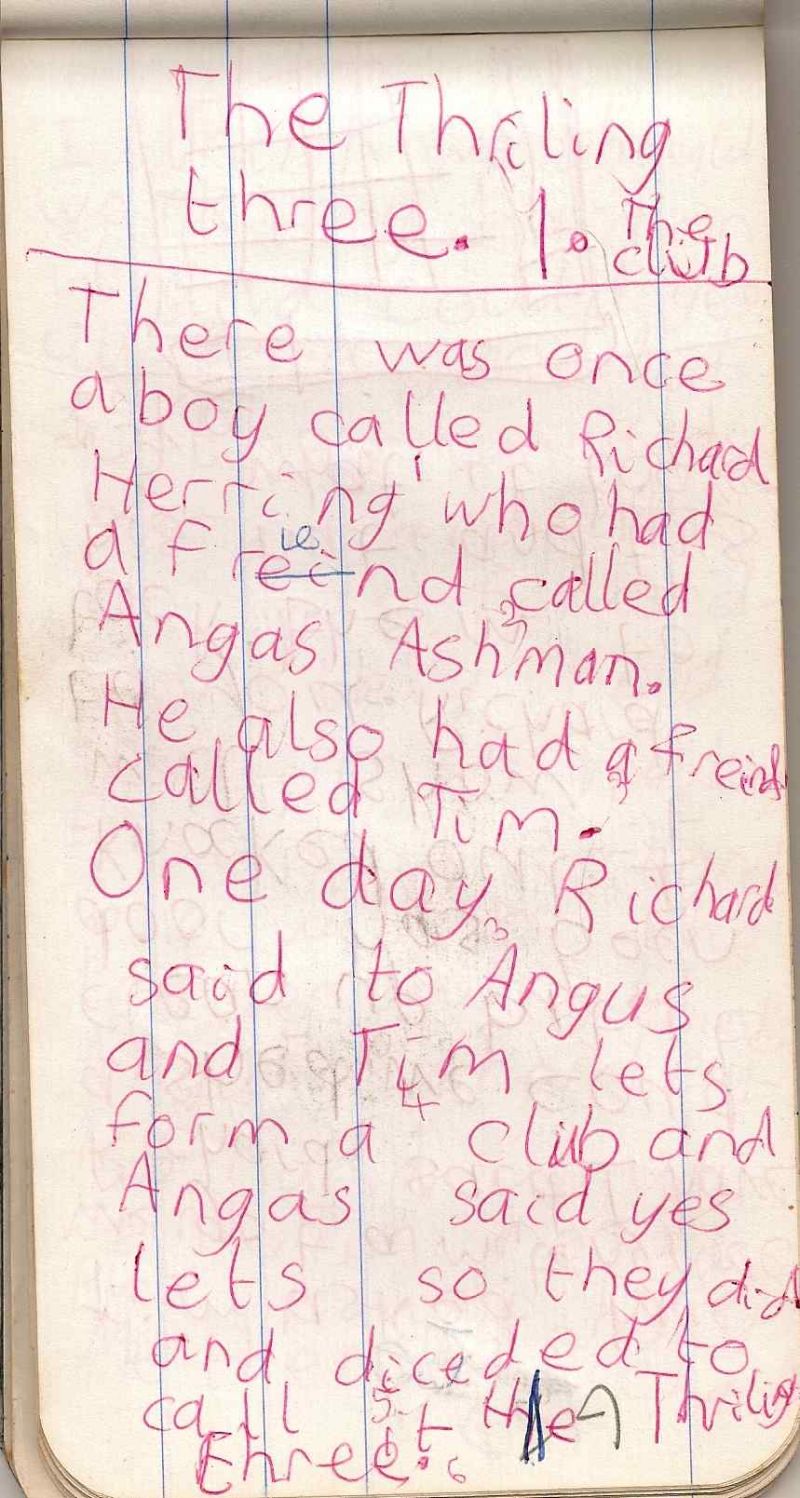 The Thriling
three. 1. The
club
There was once
a boy called Richard
Herring 1 who had
a freind ie called
Angas Ashman. 2
He also had a freind
called Tim. 3
One day, Richard
said to Angus 3
and Tim lets
form a 4 club and
Angas said yes
lets so they did
and diceded to
call it 5 the Thriling
three. 6